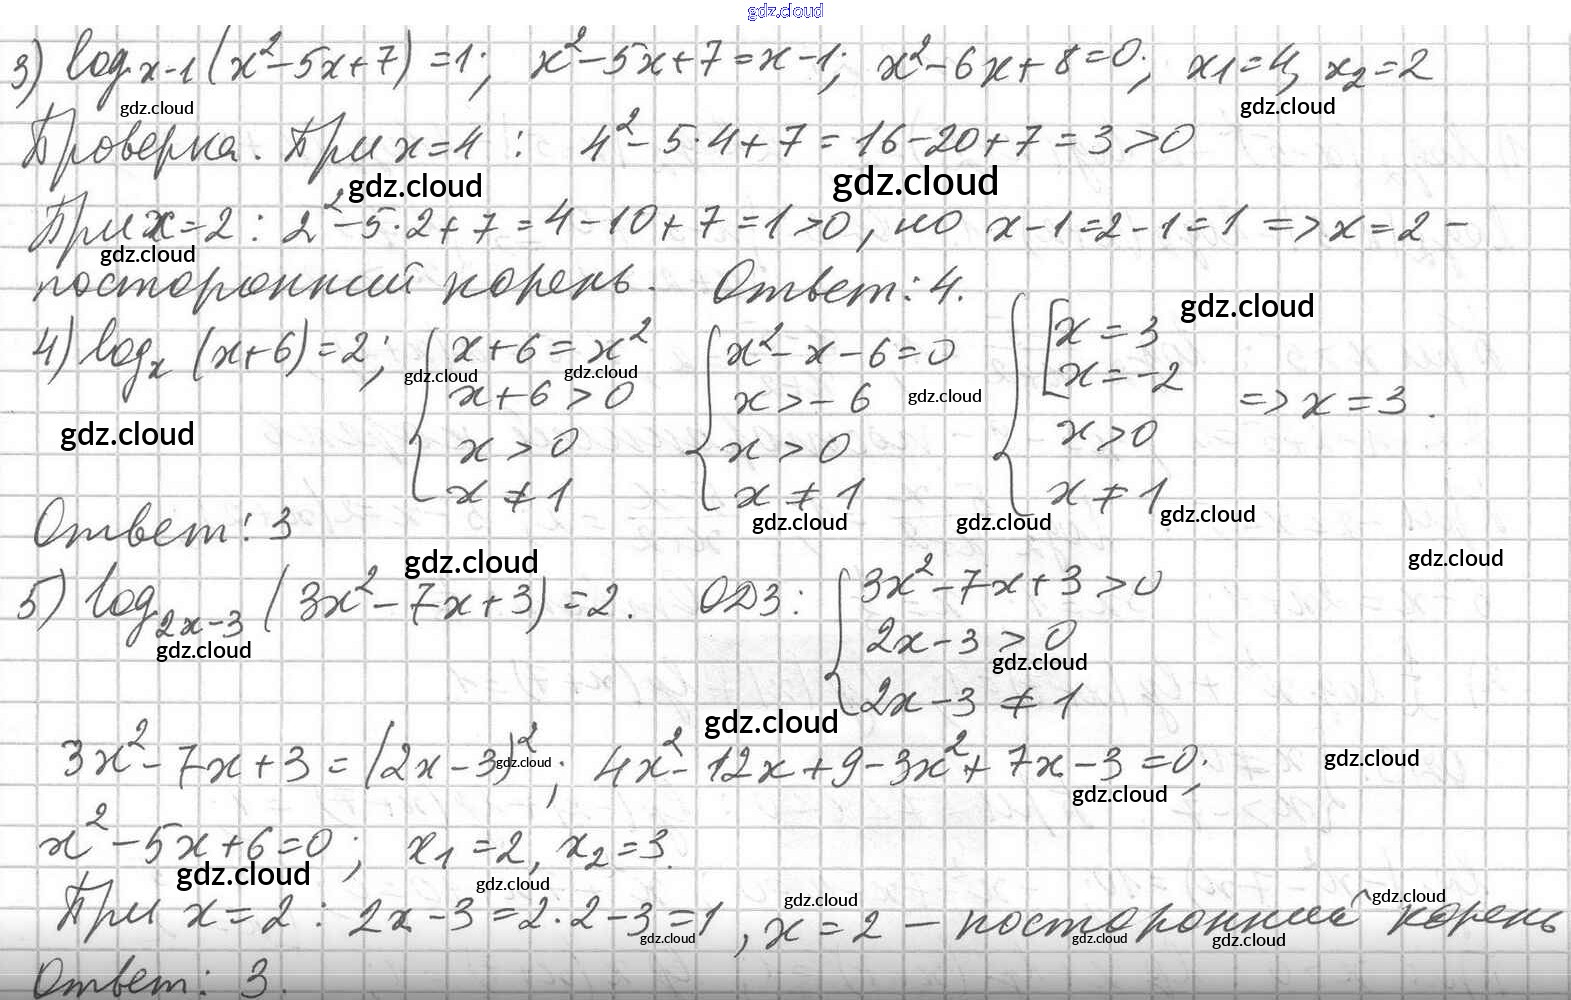 gdz.cloud
3) log_{x-1} (x² - 5x + 7) = 1; x² - 5x + 7 = x - 1; x² - 6x + 8 = 0; x₁ = 4, x₂ = 2
gdz.cloud gdz.cloud
Проверка. При x = 4 : 4² - 5·4 + 7 = 16 - 20 + 7 = 3 > 0
gdz.cloud gdz.cloud
При x = 2 : 2² - 5·2 + 7 = 4 - 10 + 7 = 1 > 0, но x - 1 = 2 - 1 = 1 => x = 2 -
gdz.cloud
посторонний корень. Ответ: 4.
gdz.cloud
4) log_x (x + 6) = 2; { x + 6 = x² { x² - x - 6 = 0 { [ x = 3
gdz.cloud gdz.cloud
x + 6 > 0 x > - 6 gdz.cloud x = -2 => x = 3.
gdz.cloud
x > 0 x > 0 x > 0
x ≠ 1 x ≠ 1 x ≠ 1
gdz.cloud gdz.cloud gdz.cloud
Ответ: 3
gdz.cloud gdz.cloud
5) log_{2x-3} (3x² - 7x + 3) = 2. ОДЗ: { 3x² - 7x + 3 > 0
gdz.cloud
2x - 3 > 0
gdz.cloud
2x - 3 ≠ 1
gdz.cloud
3x² - 7x + 3 = (2x - 3)²; 4x² - 12x + 9 - 3x² + 7x - 3 = 0;
gdz.cloud gdz.cloud
gdz.cloud
x² - 5x + 6 = 0; x₁ = 2, x₂ = 3.
gdz.cloud gdz.cloud
При x = 2 : 2x - 3 = 2·2 - 3 = 1, x = 2 — посторонний корень
gdz.cloud gdz.cloud
gdz.cloud gdz.cloud gdz.cloud
Ответ: 3.